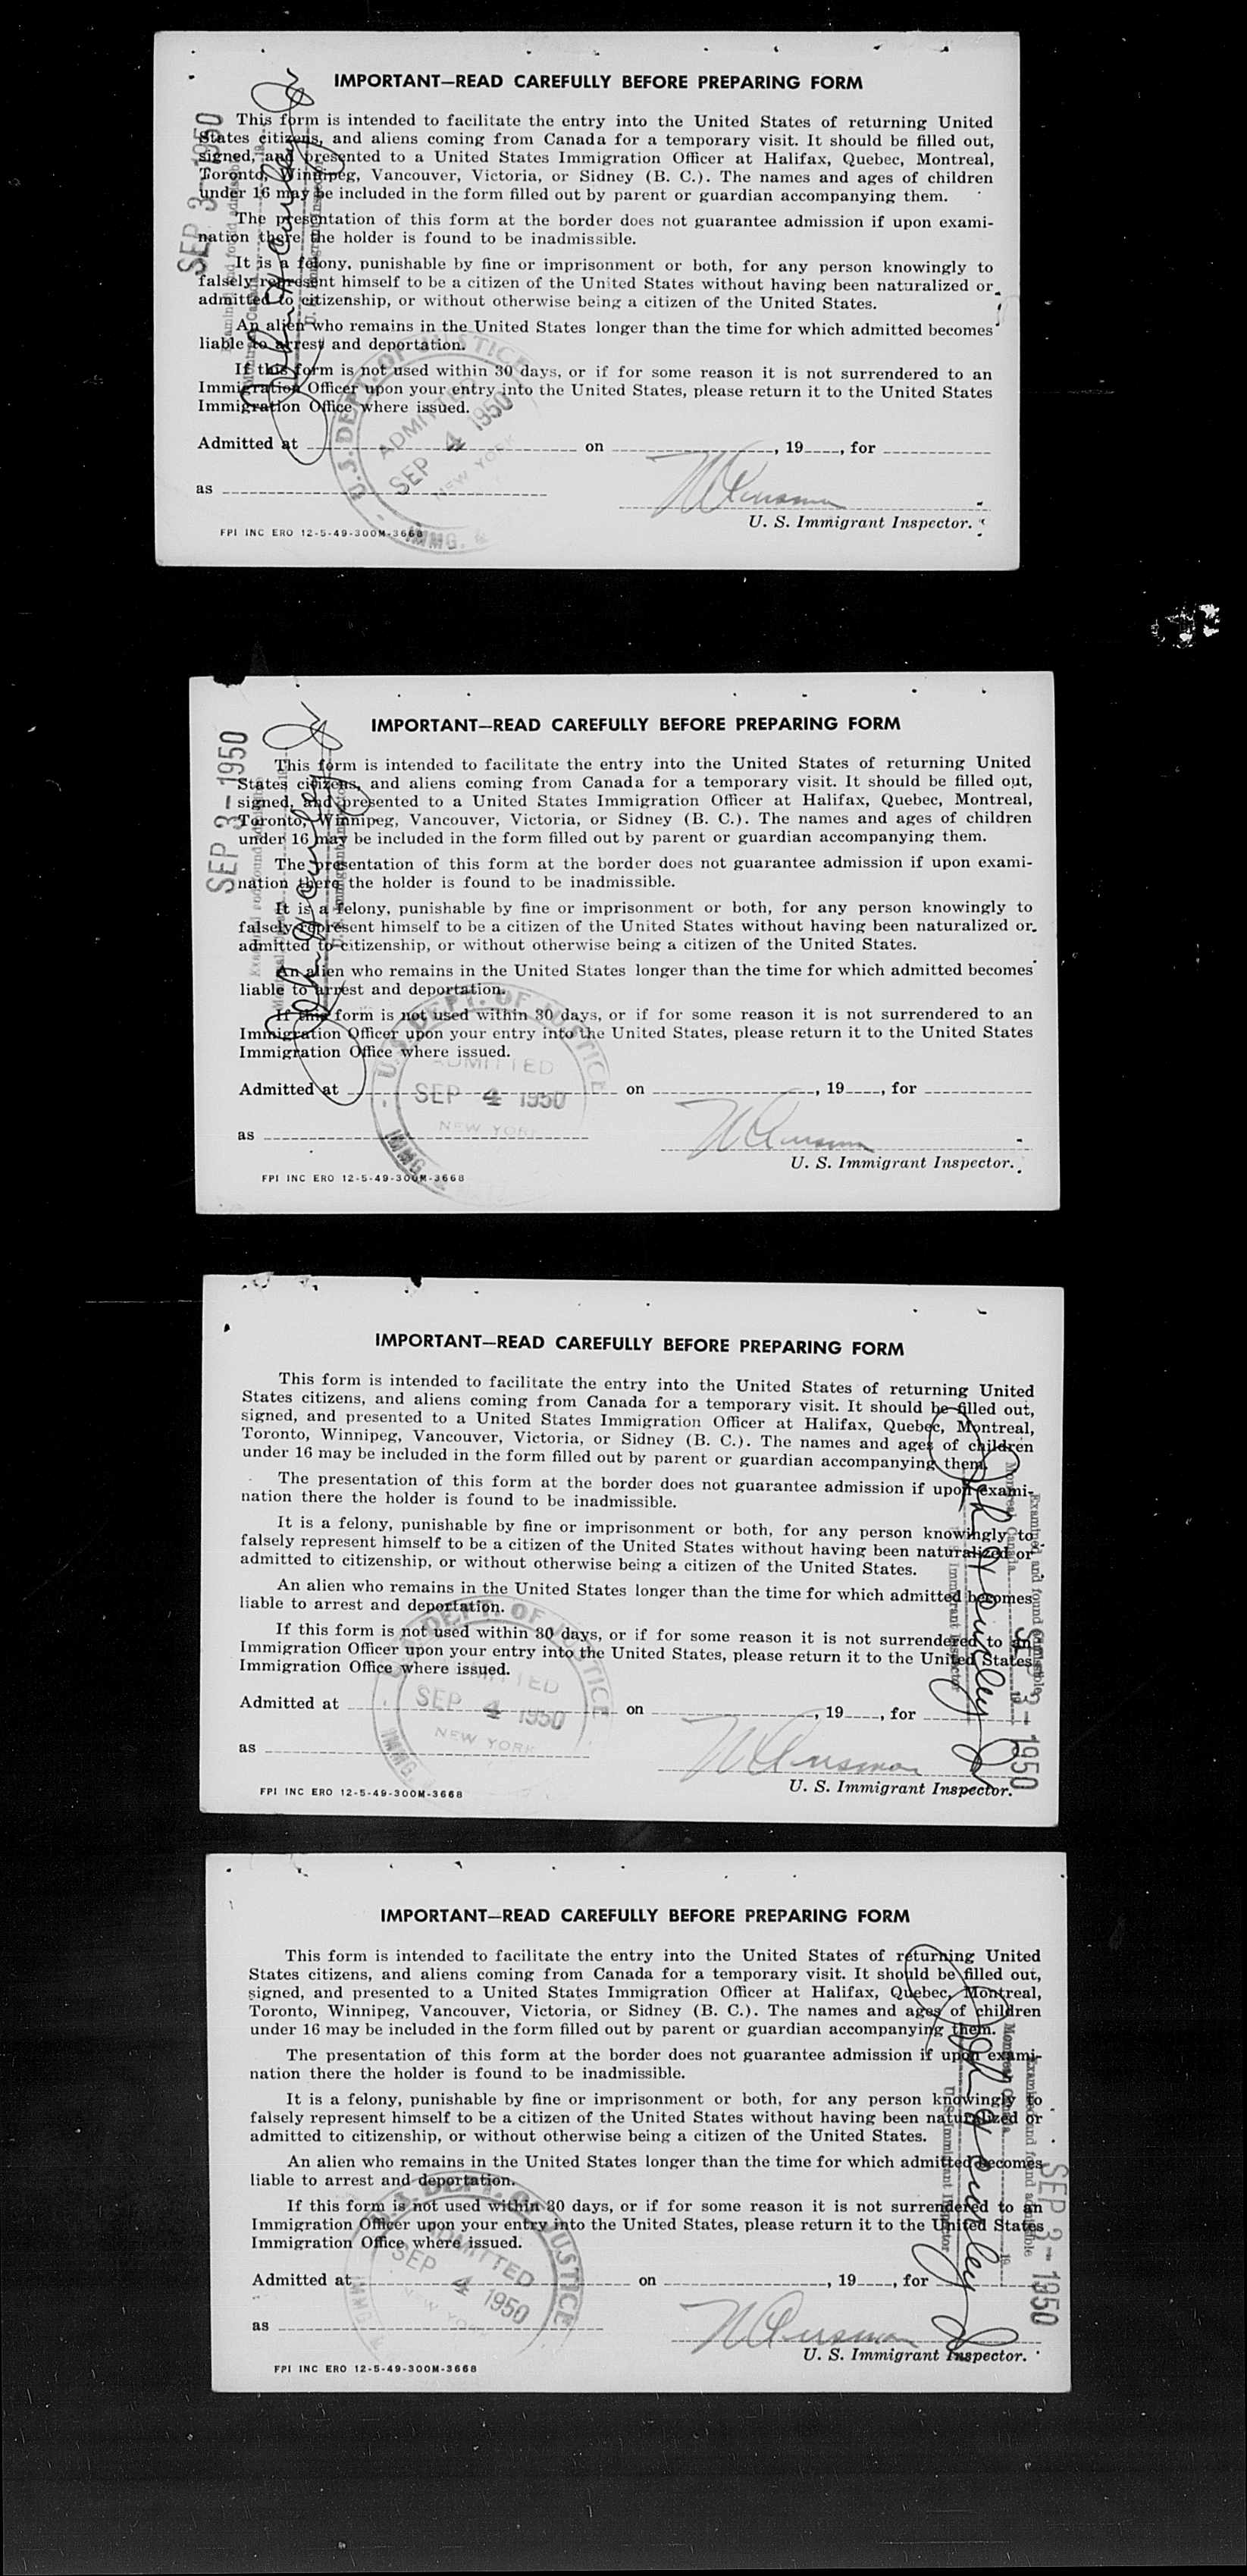 IMPORTANT—READ CAREFULLY BEFORE PREPARING FORM
This form is intended to facilitate the entry into the United States of returning United
States citizens, and aliens coming from Canada for a temporary visit. It should be filled out,
signed, and presented to a United States Immigration Officer at Halifax, Quebec, Montreal,
Toronto, Winnipeg, Vancouver, Victoria, or Sidney (B. C.). The names and ages of children
under 16 may be included in the form filled out by parent or guardian accompanying them.
The presentation of this form at the border does not guarantee admission if upon exami-
nation there the holder is found to be inadmissible.
It is a felony, punishable by fine or imprisonment or both, for any person knowingly to
falsely represent himself to be a citizen of the United States without having been naturalized or
admitted to citizenship, or without otherwise being a citizen of the United States.
An alien who remains in the United States longer than the time for which admitted becomes
liable to arrest and deportation.
If this form is not used within 30 days, or if for some reason it is not surrendered to an
Immigration Officer upon your entry into the United States, please return it to the United States
Immigration Office where issued.
Admitted at on , 19 , for
as
U. S. Immigrant Inspector.
FPI INC ERO 12-5-49-300M-3668
SEP 3-1950
Examined and found admissible
Montreal, Canada 19
U. S. Immigrant Inspector
U.S. DEPT. OF JUSTICE
ADMITTED
SEP 4 1950
NEW YORK
IMMG. &
IMPORTANT—READ CAREFULLY BEFORE PREPARING FORM
This form is intended to facilitate the entry into the United States of returning United
States citizens, and aliens coming from Canada for a temporary visit. It should be filled out,
signed, and presented to a United States Immigration Officer at Halifax, Quebec, Montreal,
Toronto, Winnipeg, Vancouver, Victoria, or Sidney (B. C.). The names and ages of children
under 16 may be included in the form filled out by parent or guardian accompanying them.
The presentation of this form at the border does not guarantee admission if upon exami-
nation there the holder is found to be inadmissible.
It is a felony, punishable by fine or imprisonment or both, for any person knowingly to
falsely represent himself to be a citizen of the United States without having been naturalized or
admitted to citizenship, or without otherwise being a citizen of the United States.
An alien who remains in the United States longer than the time for which admitted becomes
liable to arrest and deportation.
If this form is not used within 30 days, or if for some reason it is not surrendered to an
Immigration Officer upon your entry into the United States, please return it to the United States
Immigration Office where issued.
Admitted at on , 19 , for
as
U. S. Immigrant Inspector.
FPI INC ERO 12-5-49-300M-3668
SEP 3-1950
Examined and found admissible
Montreal, Canada 19
U. S. Immigrant Inspector
U.S. DEPT. OF JUSTICE
ADMITTED
SEP 4 1950
NEW YORK
IMMG
IMPORTANT—READ CAREFULLY BEFORE PREPARING FORM
This form is intended to facilitate the entry into the United States of returning United
States citizens, and aliens coming from Canada for a temporary visit. It should be filled out,
signed, and presented to a United States Immigration Officer at Halifax, Quebec, Montreal,
Toronto, Winnipeg, Vancouver, Victoria, or Sidney (B. C.). The names and ages of children
under 16 may be included in the form filled out by parent or guardian accompanying them.
The presentation of this form at the border does not guarantee admission if upon exami-
nation there the holder is found to be inadmissible.
It is a felony, punishable by fine or imprisonment or both, for any person knowingly to
falsely represent himself to be a citizen of the United States without having been naturalized or
admitted to citizenship, or without otherwise being a citizen of the United States.
An alien who remains in the United States longer than the time for which admitted becomes
liable to arrest and deportation.
If this form is not used within 30 days, or if for some reason it is not surrendered to an
Immigration Officer upon your entry into the United States, please return it to the United States
Immigration Office where issued.
Admitted at on , 19 , for
as
U. S. Immigrant Inspector.
FPI INC ERO 12-5-49-300M-3668
Examined and found admissible
Montreal, Canada 19
U. S. Immigrant Inspector
SEP 3-1950
U.S. DEPT. OF JUSTICE
ADMITTED
SEP 4 1950
NEW YORK
IMMG.
IMPORTANT—READ CAREFULLY BEFORE PREPARING FORM
This form is intended to facilitate the entry into the United States of returning United
States citizens, and aliens coming from Canada for a temporary visit. It should be filled out,
signed, and presented to a United States Immigration Officer at Halifax, Quebec, Montreal,
Toronto, Winnipeg, Vancouver, Victoria, or Sidney (B. C.). The names and ages of children
under 16 may be included in the form filled out by parent or guardian accompanying them.
The presentation of this form at the border does not guarantee admission if upon exami-
nation there the holder is found to be inadmissible.
It is a felony, punishable by fine or imprisonment or both, for any person knowingly to
falsely represent himself to be a citizen of the United States without having been naturalized or
admitted to citizenship, or without otherwise being a citizen of the United States.
An alien who remains in the United States longer than the time for which admitted becomes
liable to arrest and deportation.
If this form is not used within 30 days, or if for some reason it is not surrendered to an
Immigration Officer upon your entry into the United States, please return it to the United States
Immigration Office where issued.
Admitted at on , 19 , for
as
U. S. Immigrant Inspector.
FPI INC ERO 12-5-49-300M-3668
Examined and found admissible
Montreal, Canada 19
U. S. Immigrant Inspector
SEP 3-1950
U.S. DEPT. OF JUSTICE
ADMITTED
SEP 4 1950
NEW YORK
IMMG